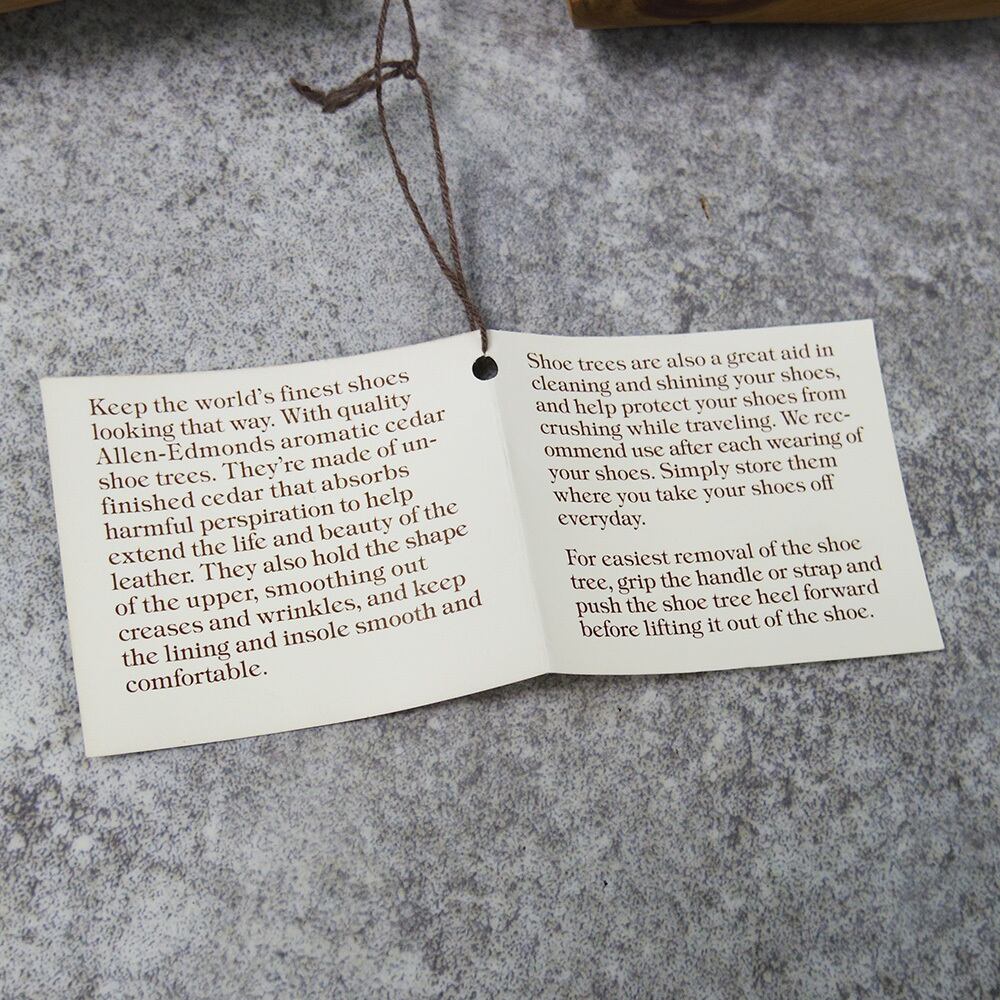 Keep the world's finest shoes
looking that way. With quality
Allen-Edmonds aromatic cedar
shoe trees. They're made of un-
finished cedar that absorbs
harmful perspiration to help
extend the life and beauty of the
leather. They also hold the shape
of the upper, smoothing out
creases and wrinkles, and keep
the lining and insole smooth and
comfortable.
Shoe trees are also a great aid in
cleaning and shining your shoes,
and help protect your shoes from
crushing while traveling. We rec-
ommend use after each wearing of
your shoes. Simply store them
where you take your shoes off
everyday.
For easiest removal of the shoe
tree, grip the handle or strap and
push the shoe tree heel forward
before lifting it out of the shoe.